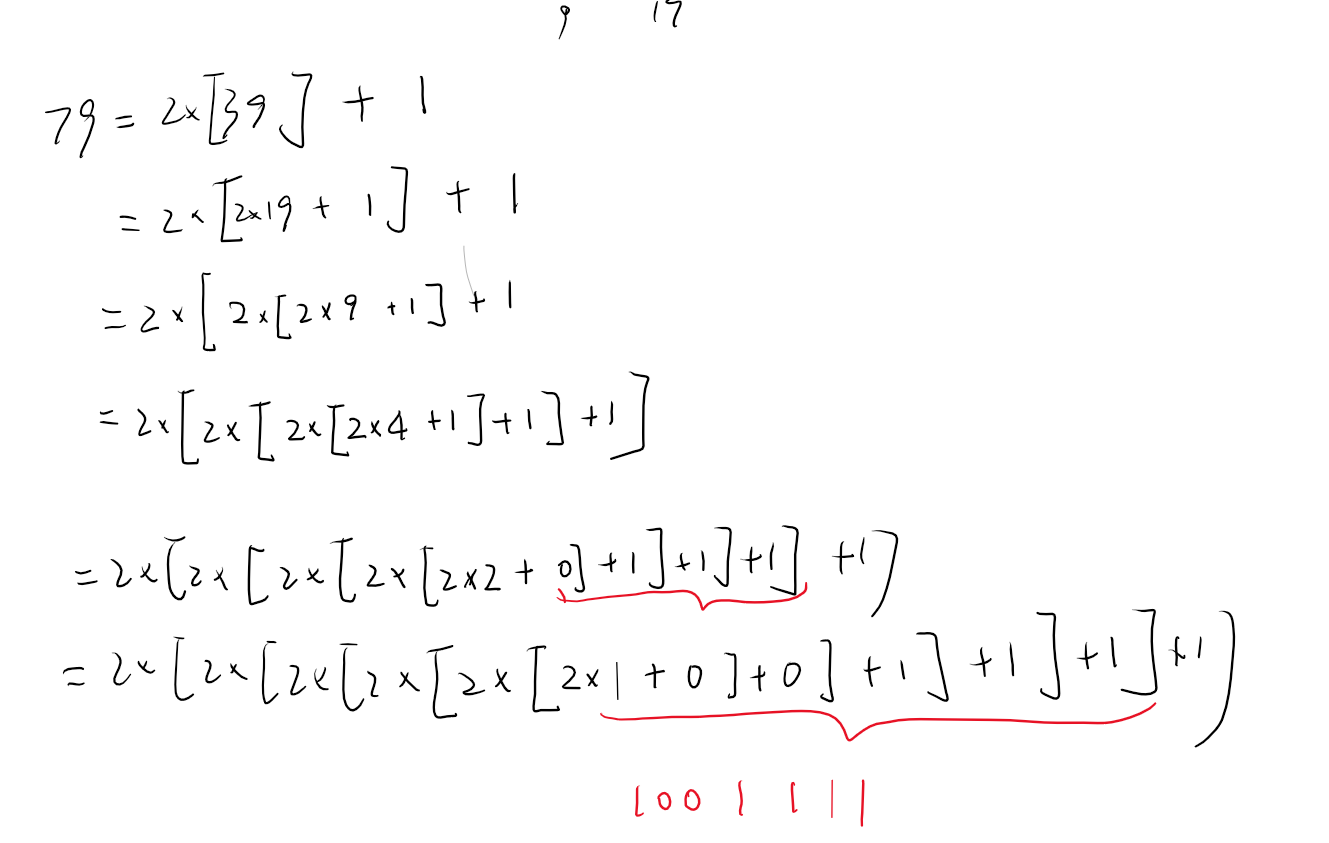 9 17
79 = 2×[39] + 1
= 2×[2×19 + 1] + 1
= 2×[2×[2×9 +1] +1
= 2×[2×[2×[2×4 +1]+1] +1]
= 2×[2×[2×[2×[2×[2×2 + 0]+1]+1]+1] +1)
= 2×[2×[2×[2×[2×[2×[2×1 + 0]+0] +1] +1] +1]+1)
1 0 0 1 1 1 1